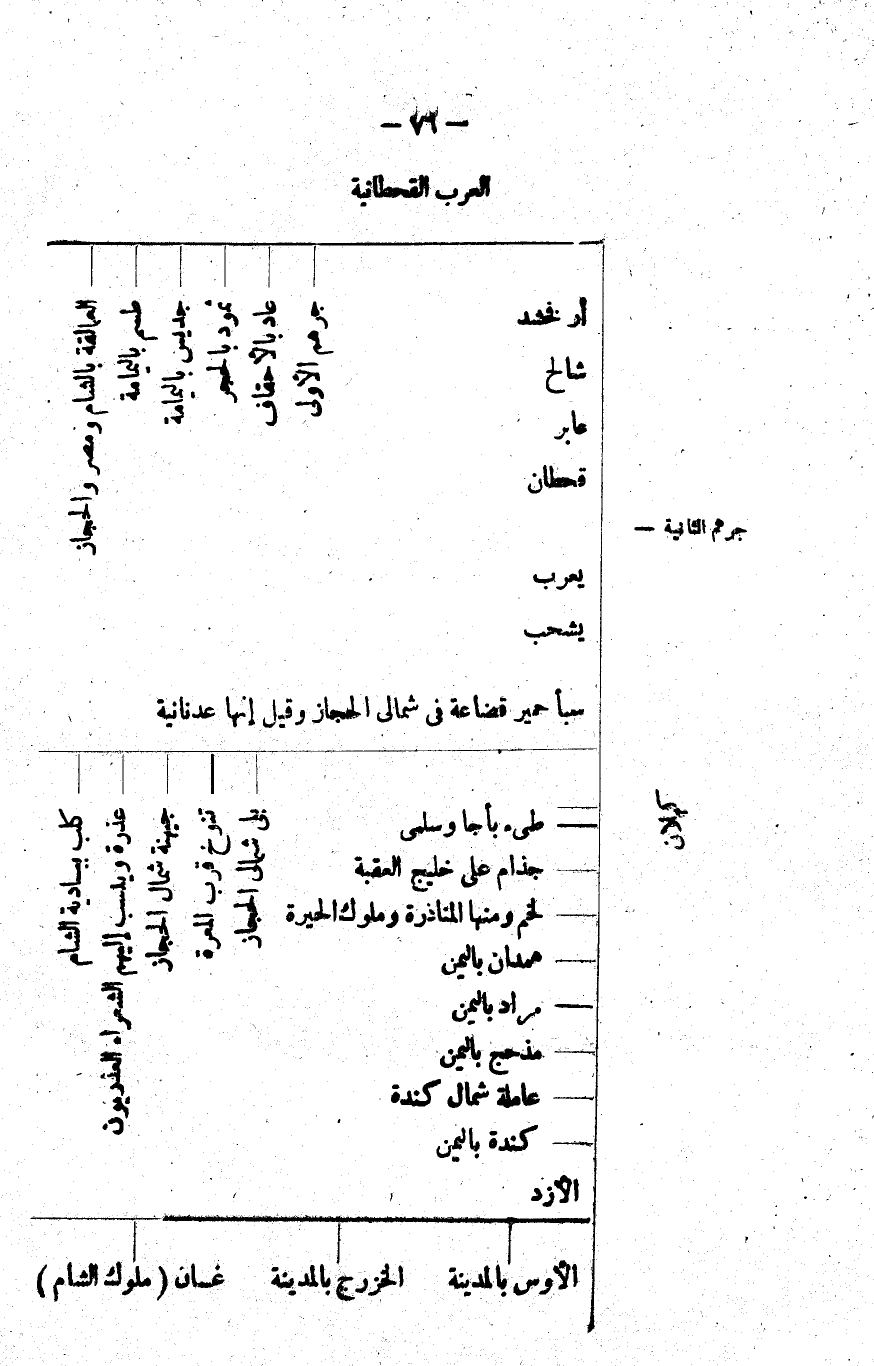 — ٧٦ —
العرب القحطانية
أرفخشد
شالخ
عابر
قحطان
جرهم الثانية —
يعرب
يشحب
جرهم الأولى
عاد بالأحقاف
ثمود بالحجر
جديس باليمامة
طسم باليمامة
العمالقة بالشام ومصر والحجاز
سبأ حمير قضاعة فى شمالى الحجاز وقيل إنها عدنانية
كهلان
طىء بأجا وسلمى
جذام على خليج العقبة
لخم ومنها المناذرة وملوك الحيرة
همدان باليمن
مراد باليمن
مذحج باليمن
عاملة شمال كندة
كندة باليمن
الأزد
بلى شمالى الحجاز
تنوخ قرب المعرة
جهينة شمال الحجاز
عذرة وينسب إليهم الشعراء العذريون
كلب ببادية الشام
الأوس بالمدينة
الخزرج بالمدينة
غسان ( ملوك الشام )